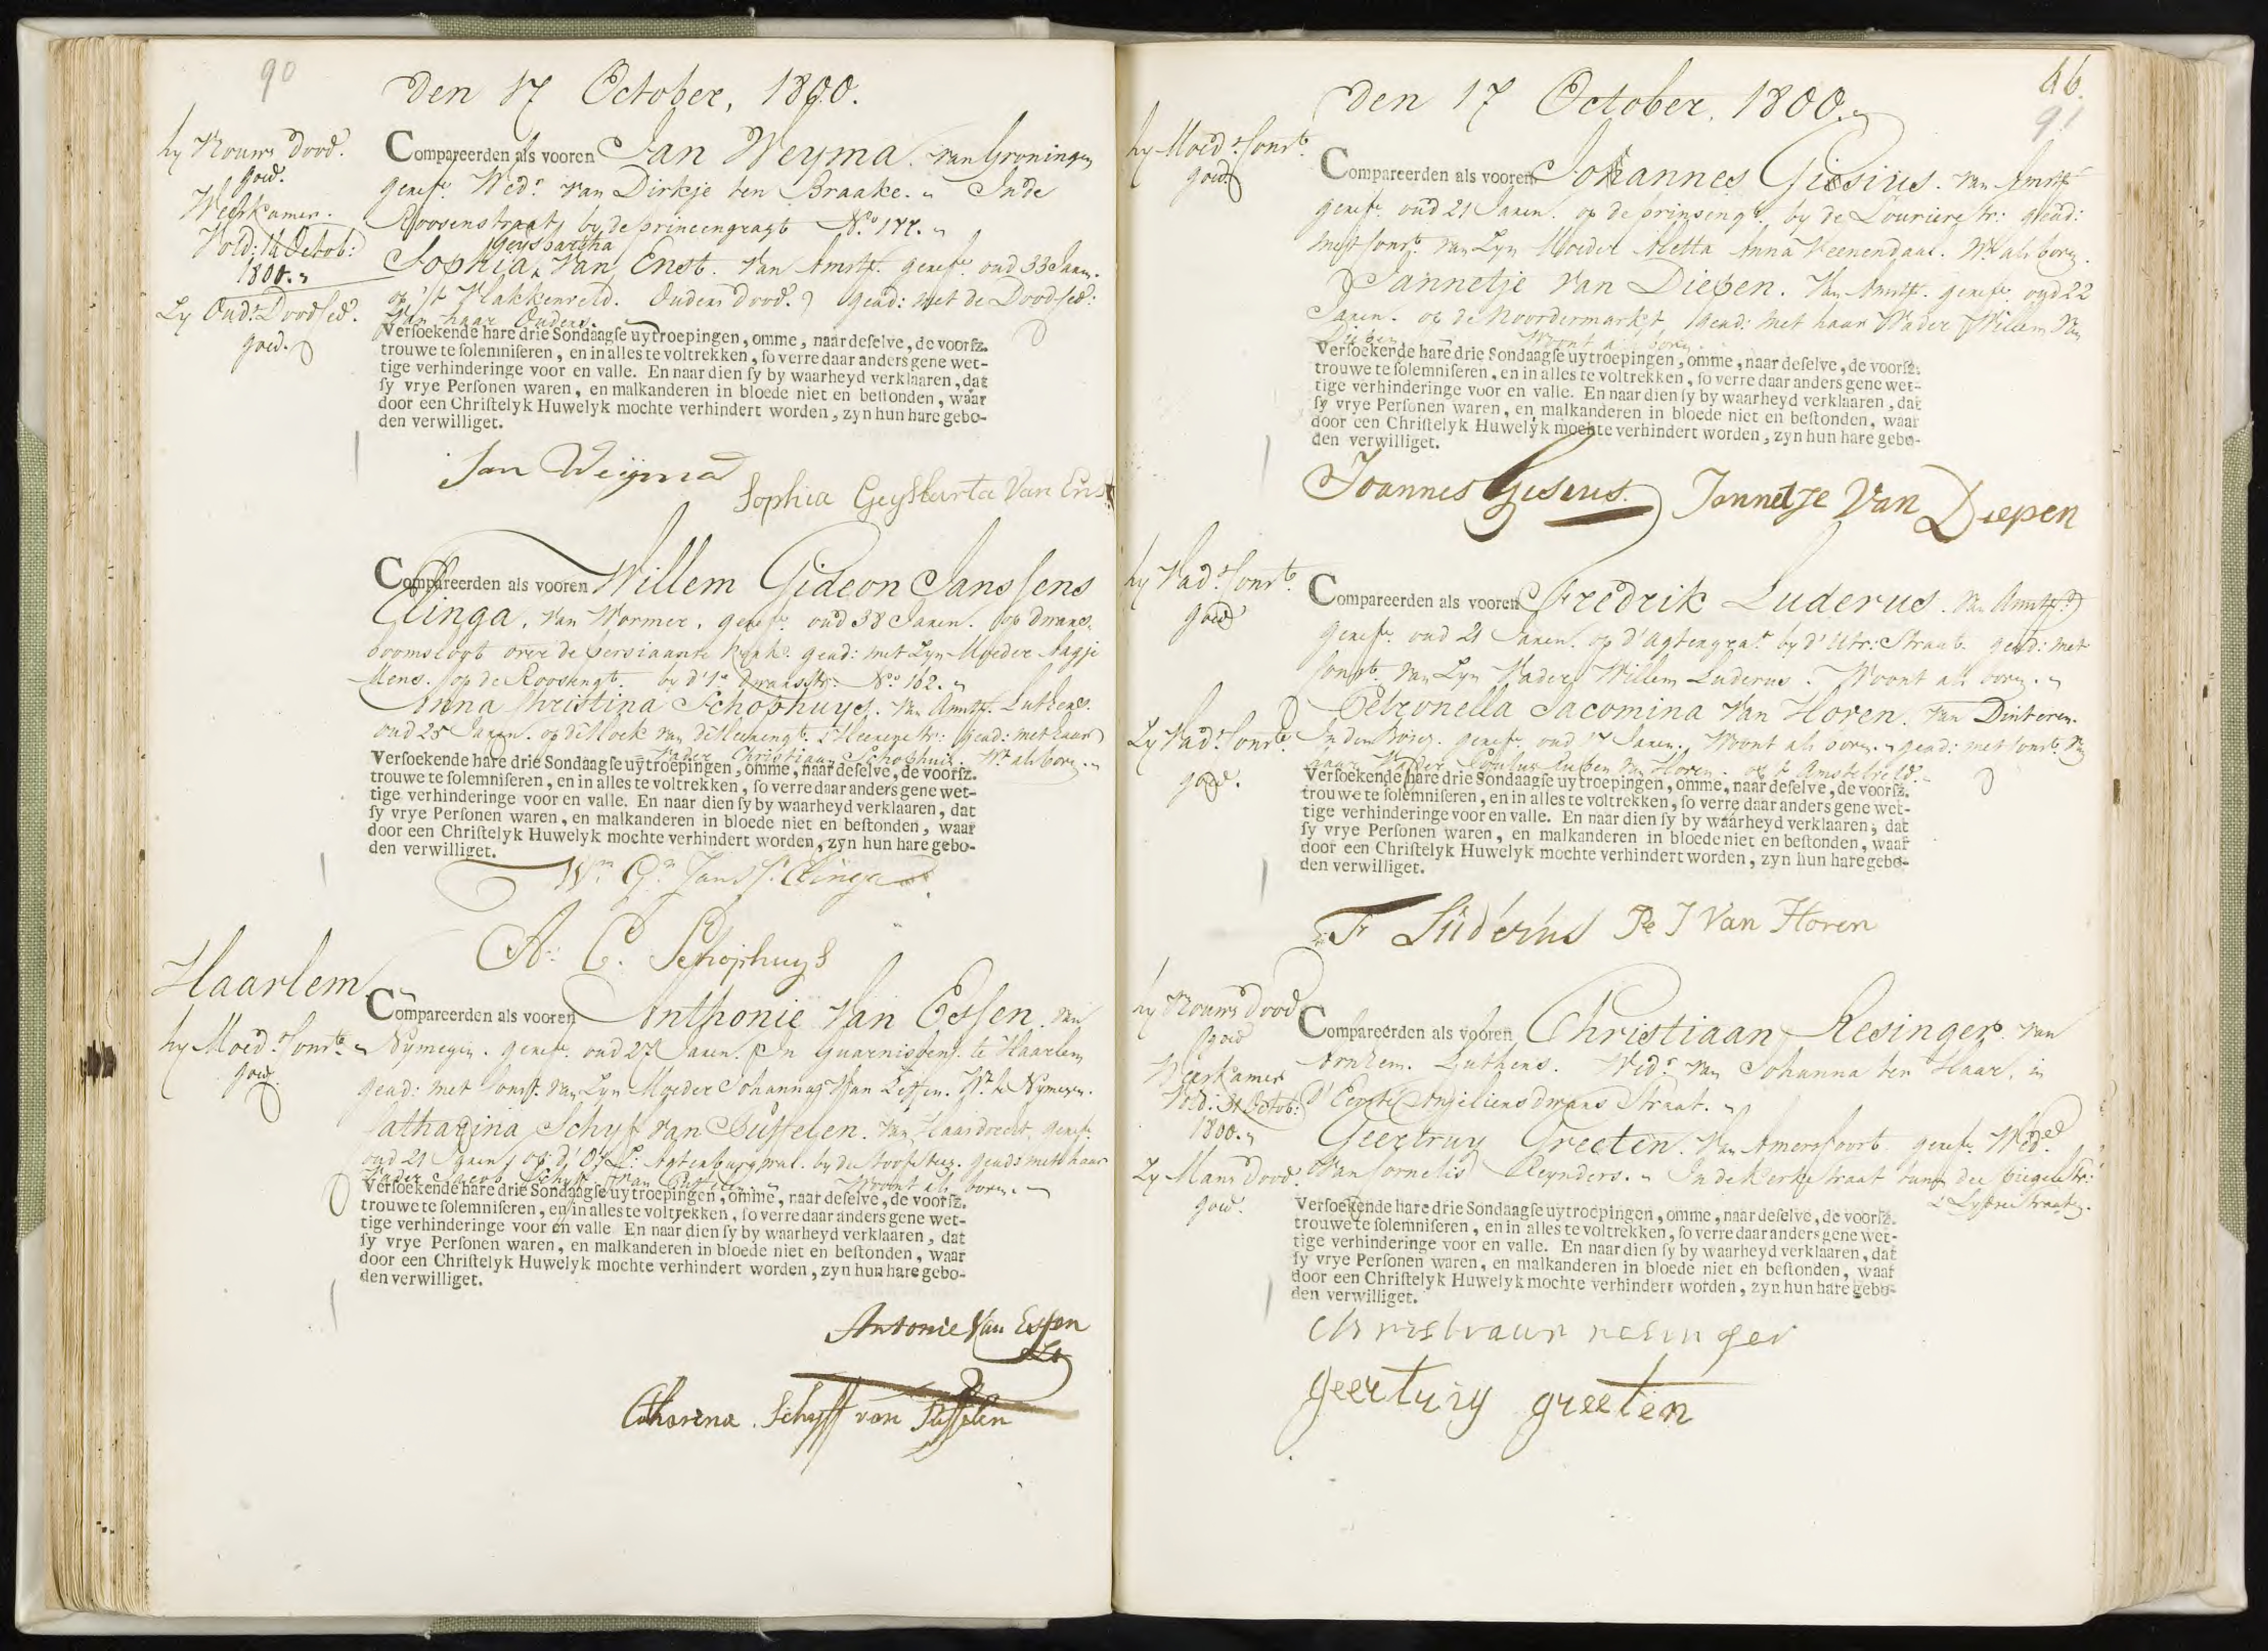 90
Den 17 October, 1800.
hy Vrouws Dood.
goed.
Weeskamer.
Vold: 16 Octob:
1800.
Zy Oud.s Dood Ced.
goed.
Compareerden als vooren Jan Weyma. van Groningen
geref. Wed.r van Dirkje ten Braake. In de
Roosenstraat, by de princengragt N.o 177.
Geysbartha
Sophia van Enst. van Amst. geref. oud 33 Jaar.
op 't Vlakkenveld. Ouders dood. gead: met de Dood Ced:
van haar Ouders.
Versoekende hare drie Sondaagse uytroepingen, omme, naar deselve, de voorsz.
trouwe te solemniseren, en in alles te voltrekken, so verre daar anders gene wet-
tige verhinderinge voor en valle. En naar dien sy by waarheyd verklaaren, dat
sy vrye Personen waren, en malkanderen in bloede niet en bestonden, waar
door een Christelyk Huwelyk mochte verhindert worden, zyn hun hare gebo-
den verwilliget.
Jan Weijma
Sophia Geysbarta Van Enst
Compareerden als vooren Willem Gideon Janssens
Elinga, van Wormer, geref. oud 38 Jaren. op Dwars
boomsloot over de persiaanse gead: met Zyn Moeder Aagje
Mens. op de Roosengt. by d'1e Dwarsstr: N.o 162.
Anna Christina Schophuys. van Amst. Luthers.
oud 25 Jaren. op de Hoek van de Heerengt. gead: met haar
Vader Christiaan Schophuis. Wt als boven.
Versoekende hare drie Sondaagse uytroepingen, omme, naar deselve, de voorsz.
trouwe te solemniseren, en in alles te voltrekken, so verre daar anders gene wet-
tige verhinderinge voor en valle. En naar dien sy by waarheyd verklaaren, dat
sy vrye Personen waren, en malkanderen in bloede niet en bestonden, waar
door een Christelyk Huwelyk mochte verhindert worden, zyn hun hare gebo-
den verwilliget.
Wm Gn Janss. Elinga
A: C. Schophuys
Haarlem
hy Moed.r Const.
goed.
Compareerden als vooren Anthonie Van Essen. van
Nymegen. geref. oud 27 Jaren. In Guarnisoen te Haarlem
gead: met Const. van Zyn Moeder Johanna Van Essen. Wt. te Nymegen.
Catharina Schyf van Suffelen. van Haasdrecht, geref.
oud 21 Jaren, op d'O: Z: Agterburgwal. by de Stoofsteeg. gead: met haar
Vader Jacob Schyf van Suffelen. Woont als boven.
Versoekende hare drie Sondaagse uytroepingen, omme, naar deselve, de voorsz.
trouwe te solemniseren, en in alles te voltrekken, so verre daar anders gene wet-
tige verhinderinge voor en valle En naar dien sy by waarheyd verklaaren, dat
sy vrye Personen waren, en malkanderen in bloede niet en bestonden, waar
door een Christelyk Huwelyk mochte verhindert worden, zyn hun hare gebo-
den verwilliget.
Antonie Van Essen
Catharina Schyff van Suffelen
46.
91
Den 17 October, 1800.
hy Moed.r Const.
goed
Compareerden als vooren Johannes Giesius. van Amst.
geref. oud 21 Jaren. op de prinsengt. by de Lourierstr: gead:
met Const. van Zyn Moeder Aletta Anna Veenendaal. Wt. als boven.
Jannetje van Diepen. van Amst. geref. oud 22
Jaren. op de Noordermarkt, gead: met haar Vader Willem van
Diepen. Woont als boven.
Versoekende hare drie Sondaagse uytroepingen, omme, naar deselve, de voorsz.
trouwe te solemniseren, en in alles te voltrekken, so verre daar anders gene wet-
tige verhinderinge voor en valle. En naar dien sy by waarheyd verklaaren, dat
sy vrye Personen waren, en malkanderen in bloede niet en bestonden, waar
door een Christelyk Huwelyk mochte verhindert worden, zyn hun hare gebo-
den verwilliget.
Joannes Giesius. Jannetje Van Diepen
hy Vad.r Const.
goed
Zy Vad.r Const.
goed.
Compareerden als vooren Fredrik Luderus. van Amst.
geref. oud 21 Jaren. op d'Agtergrat. by d'Utr: Straat. gead: met
Const. van Zyn Vader Willem Luderus. Woont als boven.
Petronella Jacomina van Horen. van Dinteren.
geref. oud 17 Jaren. Woont als boven. gead: met Const. van
haar Vader van Horen. op 't Amstelveld.
Versoekende hare drie Sondaagse uytroepingen, omme, naar deselve, de voorsz.
trouwe te solemniseren, en in alles te voltrekken, so verre daar anders gene wet-
tige verhinderinge voor en valle. En naar dien sy by waarheyd verklaaren, dat
sy vrye Personen waren, en malkanderen in bloede niet en bestonden, waar
door een Christelyk Huwelyk mochte verhindert worden, zyn hun hare gebo-
den verwilliget.
Fr Lüderus Pe J Van Horen
hy Vrouws Dood
goed
Weeskamer
Vold: 31 Octob:
1800.
Zy Mans Dood.
goed.
Compareerden als vooren Christiaan Resinger. van
Arnhem. Luthers. Wed.r van Johanna ten Haar, in
d'Eerste Angeliers dwars Straat.
Geertruy Greeten. van Amersfoort geref. Wed.e
van Cornelis Reynders. In de Kerkstraat tuns de Spiegelstr:
& Lydsestraat.
Versoekende hare drie Sondaagse uytroepingen, omme, naar deselve, de voorsz.
trouwe te solemniseren, en in alles te voltrekken, so verre daar anders gene wet-
tige verhinderinge voor en valle. En naar dien sy by waarheyd verklaaren, dat
sy vrye Personen waren, en malkanderen in bloede niet en bestonden, waar
door een Christelyk Huwelyk mochte verhindert worden, zyn hun hare gebo-
den verwilliget.
Christiaan resinger
geertruy greeten